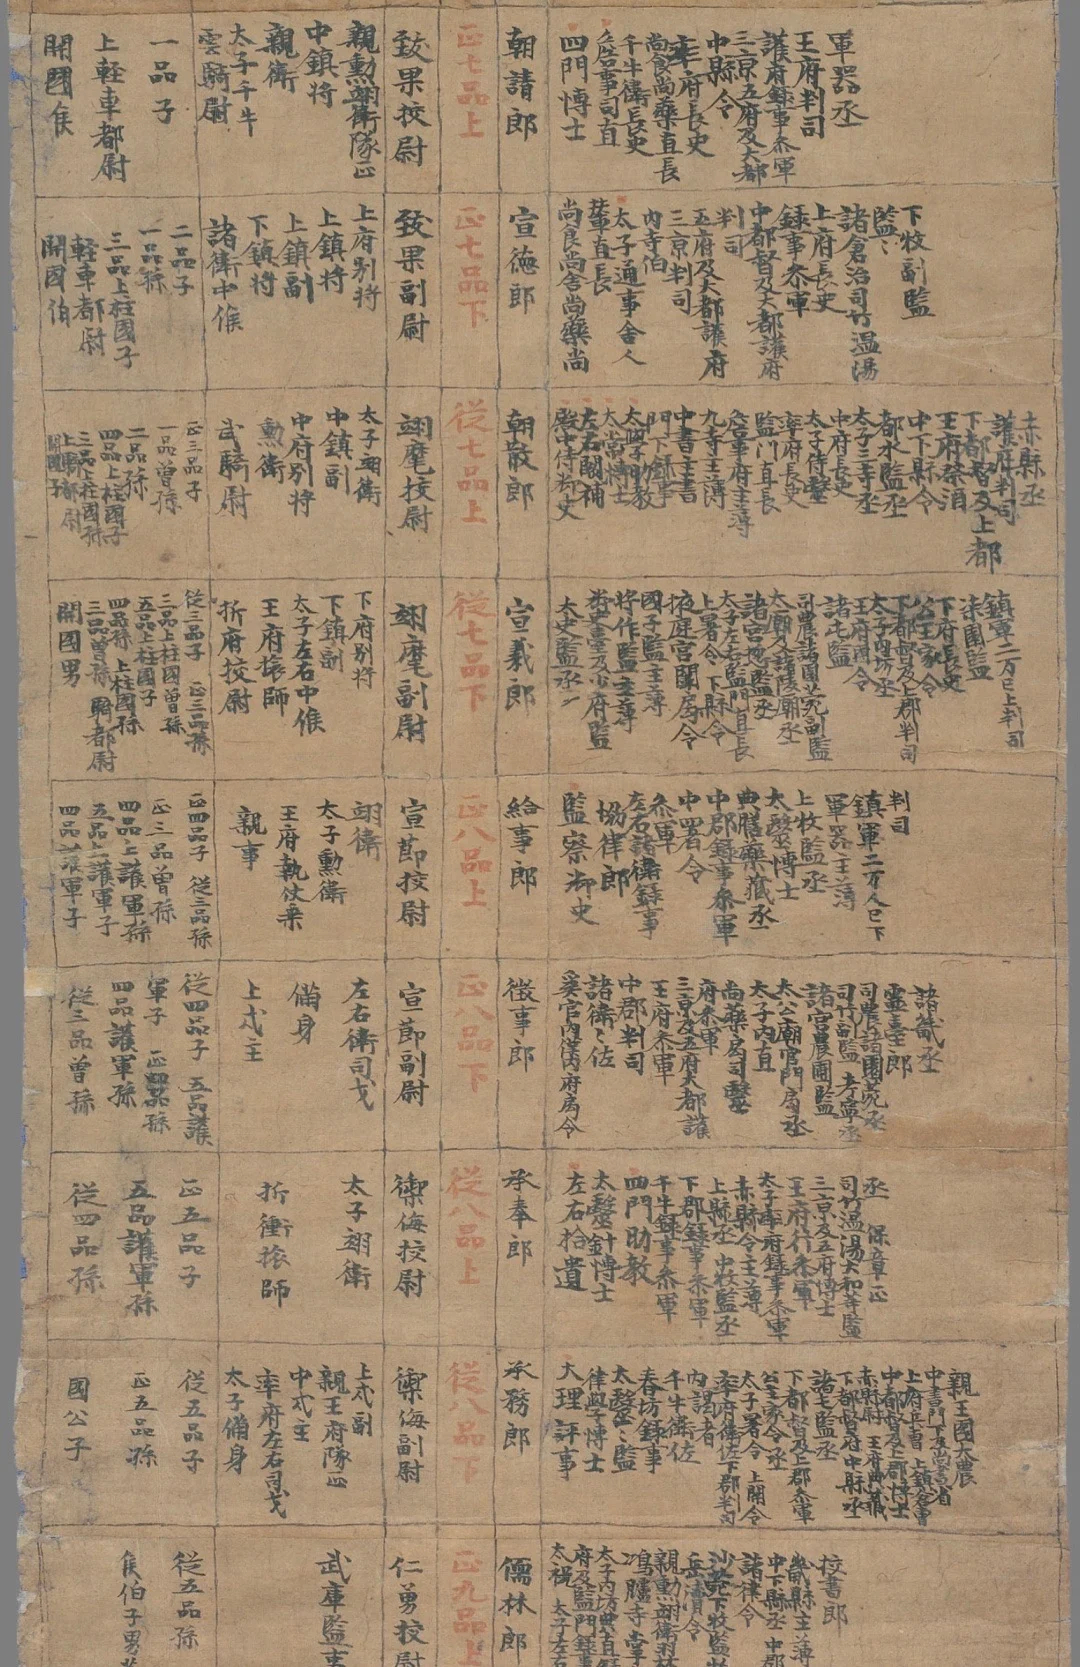 軍器丞
王府判司
護府錄事參軍
三京五府及大都
中縣令
率府長史
尚食尚藥直長
千牛衛長史
詹事司直
四門博士
朝請郎
正七品上
致果校尉
親勳翊衛隊正
中鎮將
親衛
太子千牛
雲騎尉
一品子
上輕車都尉
開國侯
下牧副監
監
諸倉冶司竹溫湯
上府長史
錄事參軍
中都督及大都護府
判司
五府及大都護府
三京判司
內寺伯
太子通事舍人
輦直長
尚食尚舍尚藥尚
宣德郎
正七品下
致果副尉
上府別將
上鎮將
上鎮副
下鎮將
諸衛中候
二品子
一品孫
三品上柱國子
輕車都尉
開國伯
赤縣丞
護府判司
下都督及上都
王府祭酒
中下縣令
都水監丞
太子三寺丞
中府長史
太子侍醫
率府長史
監門直長
詹事府主簿
九寺主簿
中書主書
門下錄事
太學助教
太常博士
左右闕補
殿中侍御史
朝散郎
從七品上
翊麾校尉
太子翊衛
中鎮副
中府別將
勳衛
武騎尉
正三品子
一品曾孫
二品孫
四品上柱國子
三品上柱國孫
上騎都尉
開國子
鎮軍二万已上判司
漆園監
下府長史
公主家令
下都督及上郡判司
太子內坊丞
王府
諸屯監
司農諸園苑副監
太廟及諸陵廟丞
諸宮監丞
太子左右監門直長
上署令 下縣令
掖庭宮闈局令
國子監主簿
將作監主簿
御史臺及少府監
太史監丞
宣義郎
從七品下
翊麾副尉
下府別將
下鎮副
太子左右中候
王府旅師
折府校尉
從三品子 正三品孫
二品上柱國曾孫
五品上柱國子
四品孫 上柱國孫
三品曾孫 騎都尉
開國男
判司
鎮軍二万人已下
軍器主簿
上牧監丞
太醫博士
典膳藥藏丞
中郡錄事參軍
中署令
參軍
左右諸衛錄事
協律郎
監察御史
給事郎
正八品上
宣節校尉
翊衛
太子勳衛
王府執仗乘
親事
正四品子 從三品孫
正三品曾孫
四品上護軍孫
五品上護軍子
四品護軍子
諸畿丞
靈臺郎
司農諸園苑丞
司竹副監
諸宮農圃監
太公廟宮門局丞
太子內直
尚藥局司醫
府參軍
三京及五府大都護
王府參軍
中郡判司
諸衛佐
奚官內僕內府局令
徵事郎
正八品下
宣節副尉
左右衛司戈
備身
上戍主
從四品子 五品護
軍子 正四品孫
四品護軍孫
從三品曾孫
丞 保章正
司竹溫湯太和等監
三京及五府博士
王府行參軍
太子率府錄事參軍
赤縣令主簿
上縣丞 中牧監丞
下郡錄事參軍
千牛錄事參軍
四門助教
太醫針博士
左右拾遺
承奉郎
從八品上
禦侮校尉
太子翊衛
折衝旅師
正五品子
五品護軍孫
從四品孫
親王國大農
中書門下及尚書省
上府兵曹 上鎮倉曹
中都督及上郡博士
赤縣尉 王府典籤
下都督府中縣丞
諸屯監丞
下都督及上郡參軍
公主家令丞
太子署令 上關令
率府衛佐下郡判司
內謁者
千牛衛佐
春坊錄事
太醫監
律學博士
大理評事
承務郎
從八品下
禦侮副尉
上戍副
親王府隊正
中戍主
率府左右司戈
太子備身
從五品子
正五品孫
國公子
校書郎
畿縣主簿
中下縣丞 中郡
諸律令
沙苑下牧監
岳瀆令
親勳翊衛羽林
鴻臚寺掌
太子內坊典直
府及監門錄事
太祝 太子左右
儒林郎
正九品上
仁勇校尉
武庫監事
從五品孫
侯伯子男